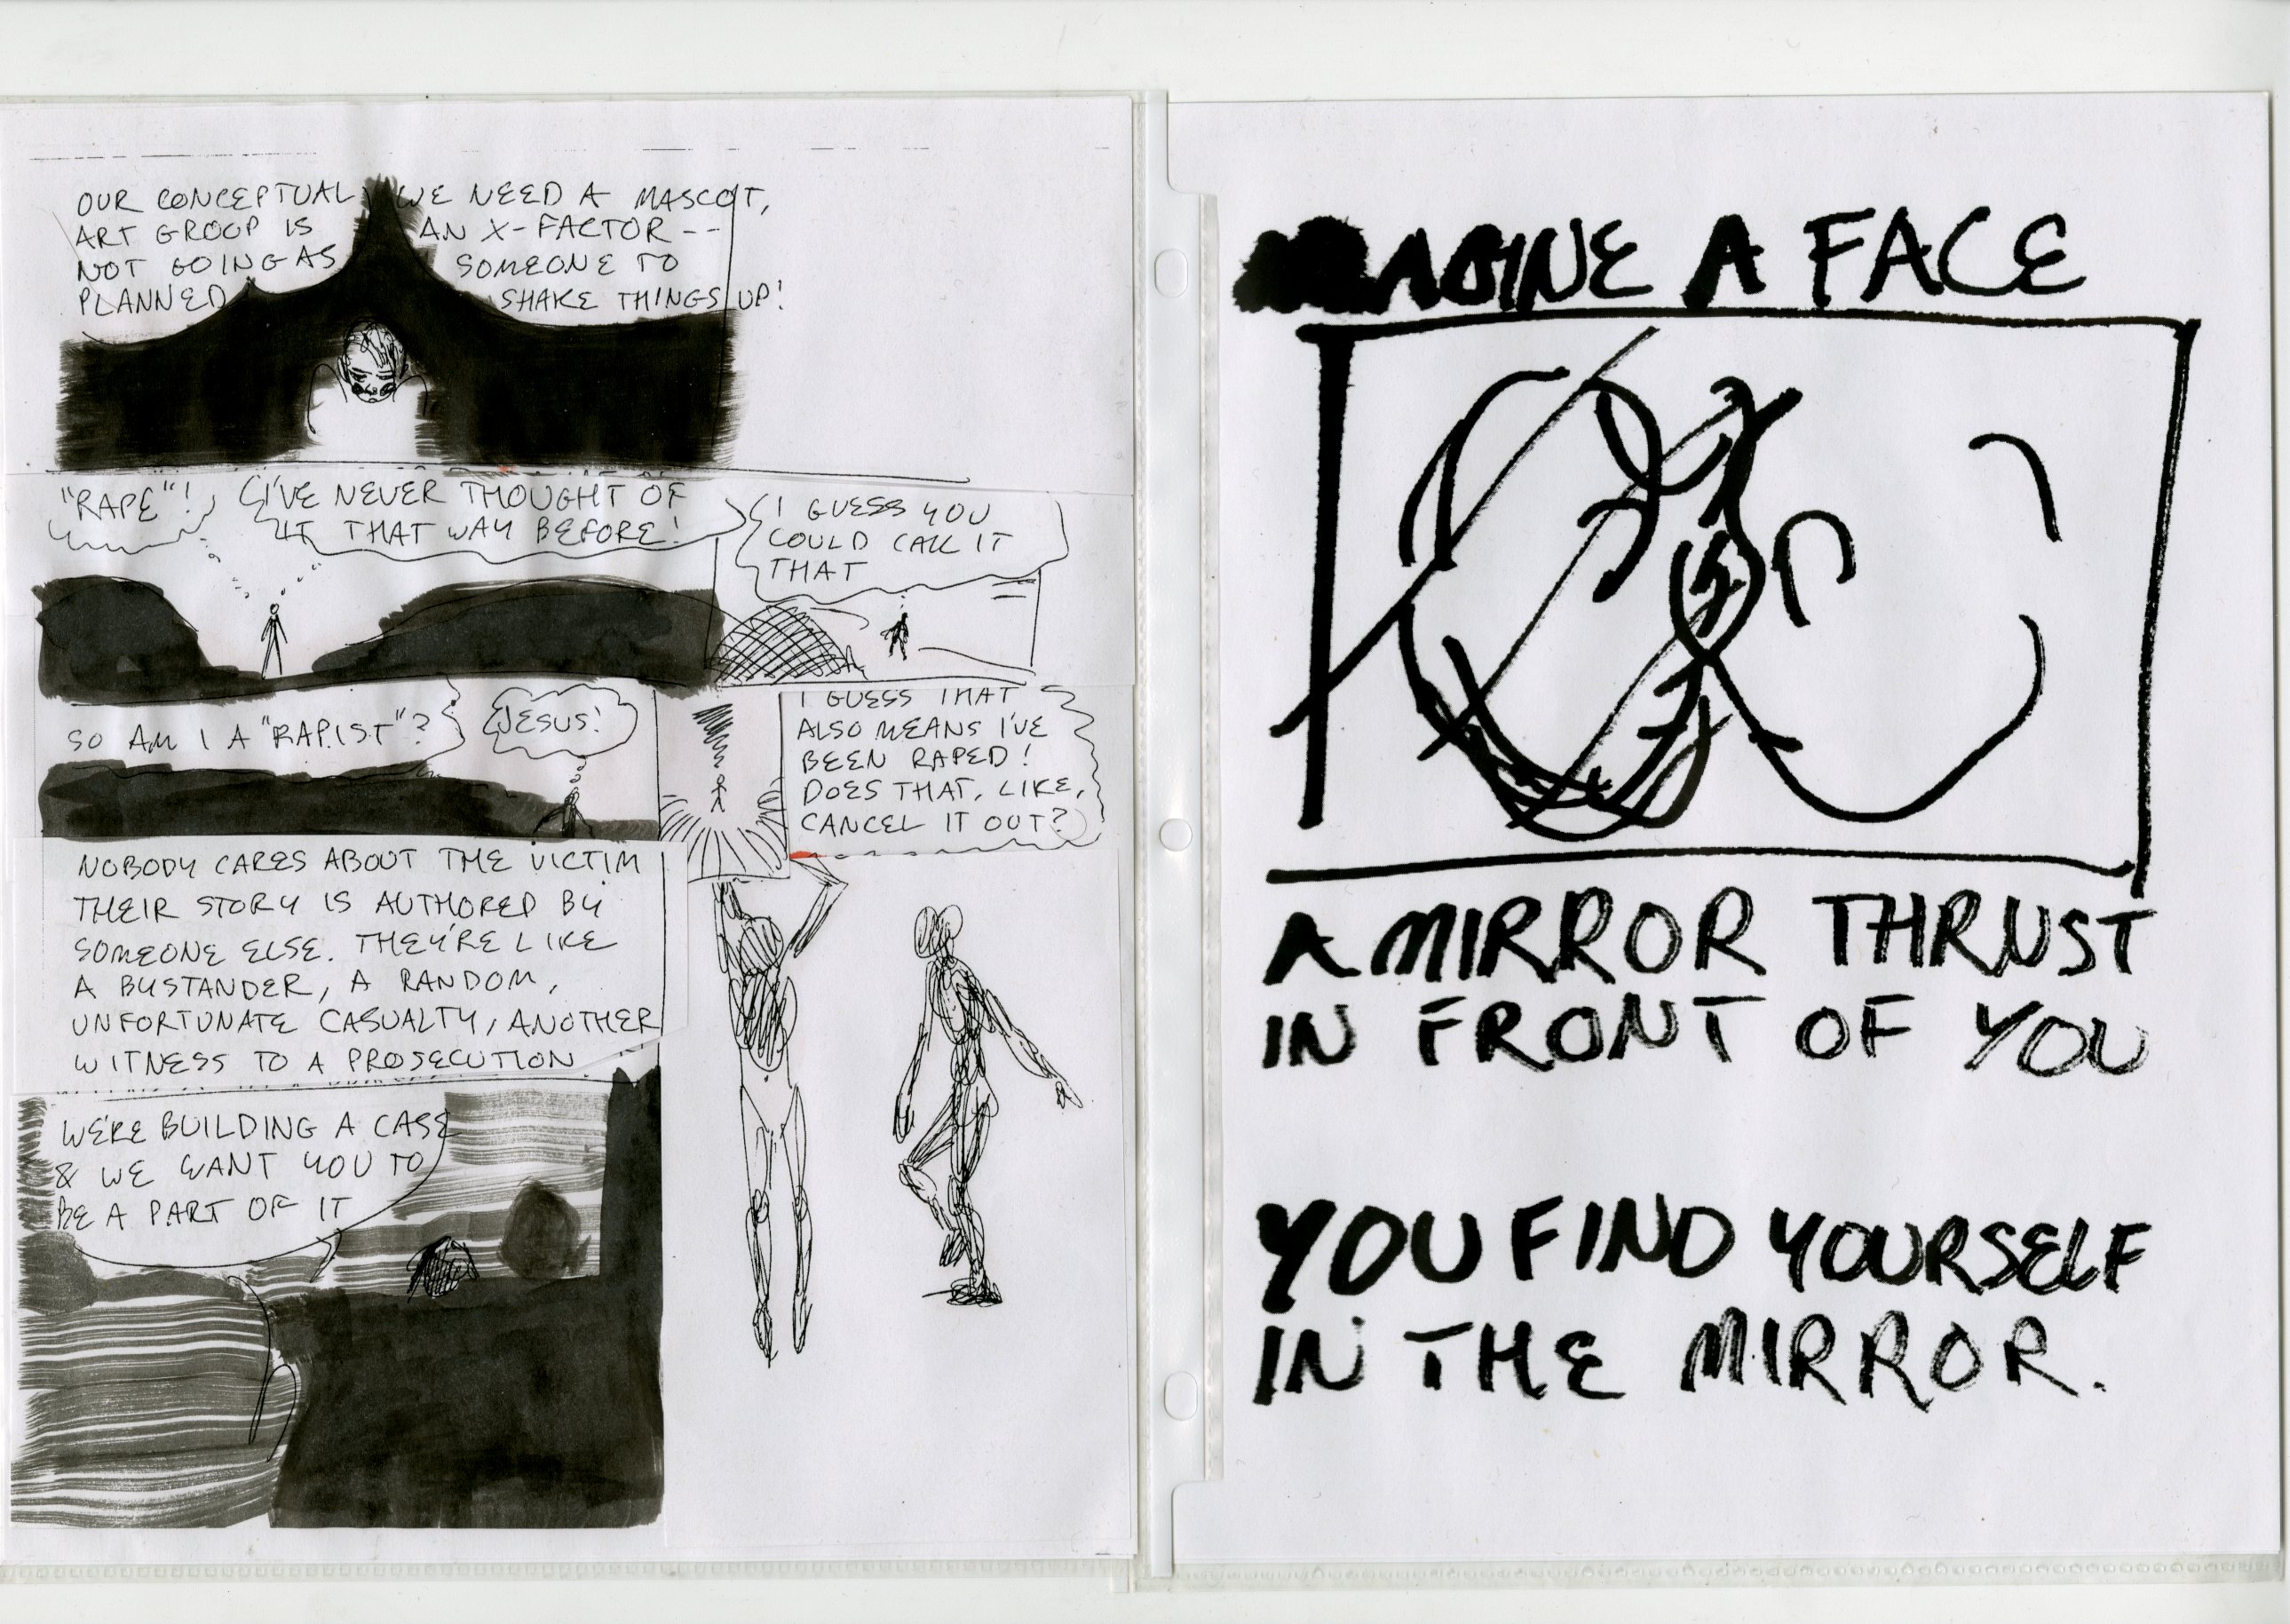 OUR CONCEPTUAL
ART GROUP IS
NOT GOING AS
PLANNED
WE NEED A MASCOT,
AN X-FACTOR--
SOMEONE TO
SHAKE THINGS UP!
"RAPE"!
I'VE NEVER THOUGHT OF
IT THAT WAY BEFORE!
I GUESS YOU
COULD CALL IT
THAT
SO AM I A "RAPIST"?
JESUS!
I GUESS THAT
ALSO MEANS I'VE
BEEN RAPED!
DOES THAT, LIKE,
CANCEL IT OUT?
NOBODY CARES ABOUT THE VICTIM
THEIR STORY IS AUTHORED BY
SOMEONE ELSE. THEY'RE LIKE
A BYSTANDER, A RANDOM,
UNFORTUNATE CASUALTY, ANOTHER
WITNESS TO A PROSECUTION
WE'RE BUILDING A CASE
& WE WANT YOU TO
BE A PART OF IT
A FACE
A MIRROR THRUST
IN FRONT OF YOU
YOU FIND YOURSELF
IN THE MIRROR.